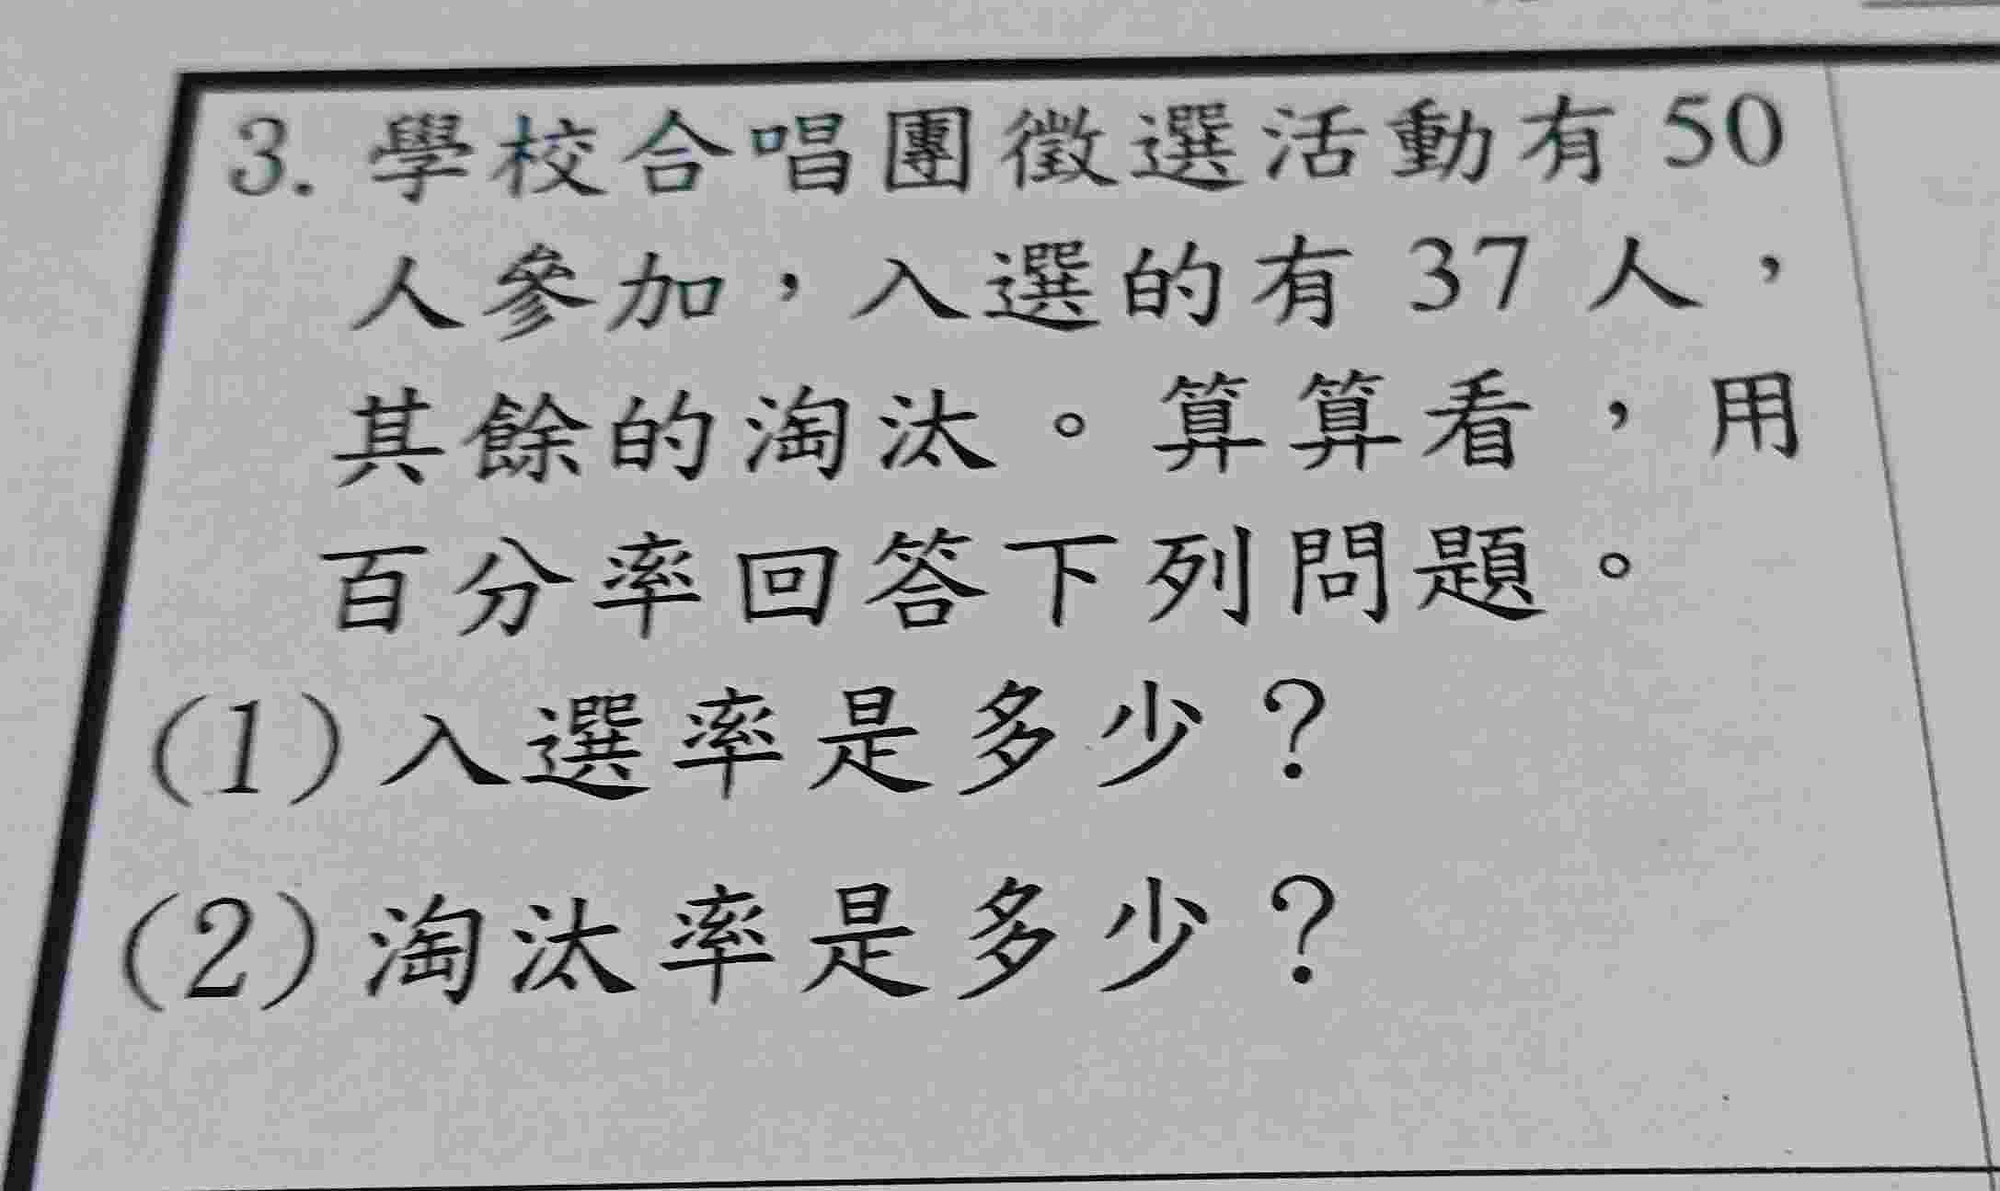 3. 學校合唱團徵選活動有 50
人參加，入選的有 37 人，
其餘的淘汰。算算看，用
百分率回答下列問題。
(1) 入選率是多少？
(2) 淘汰率是多少？